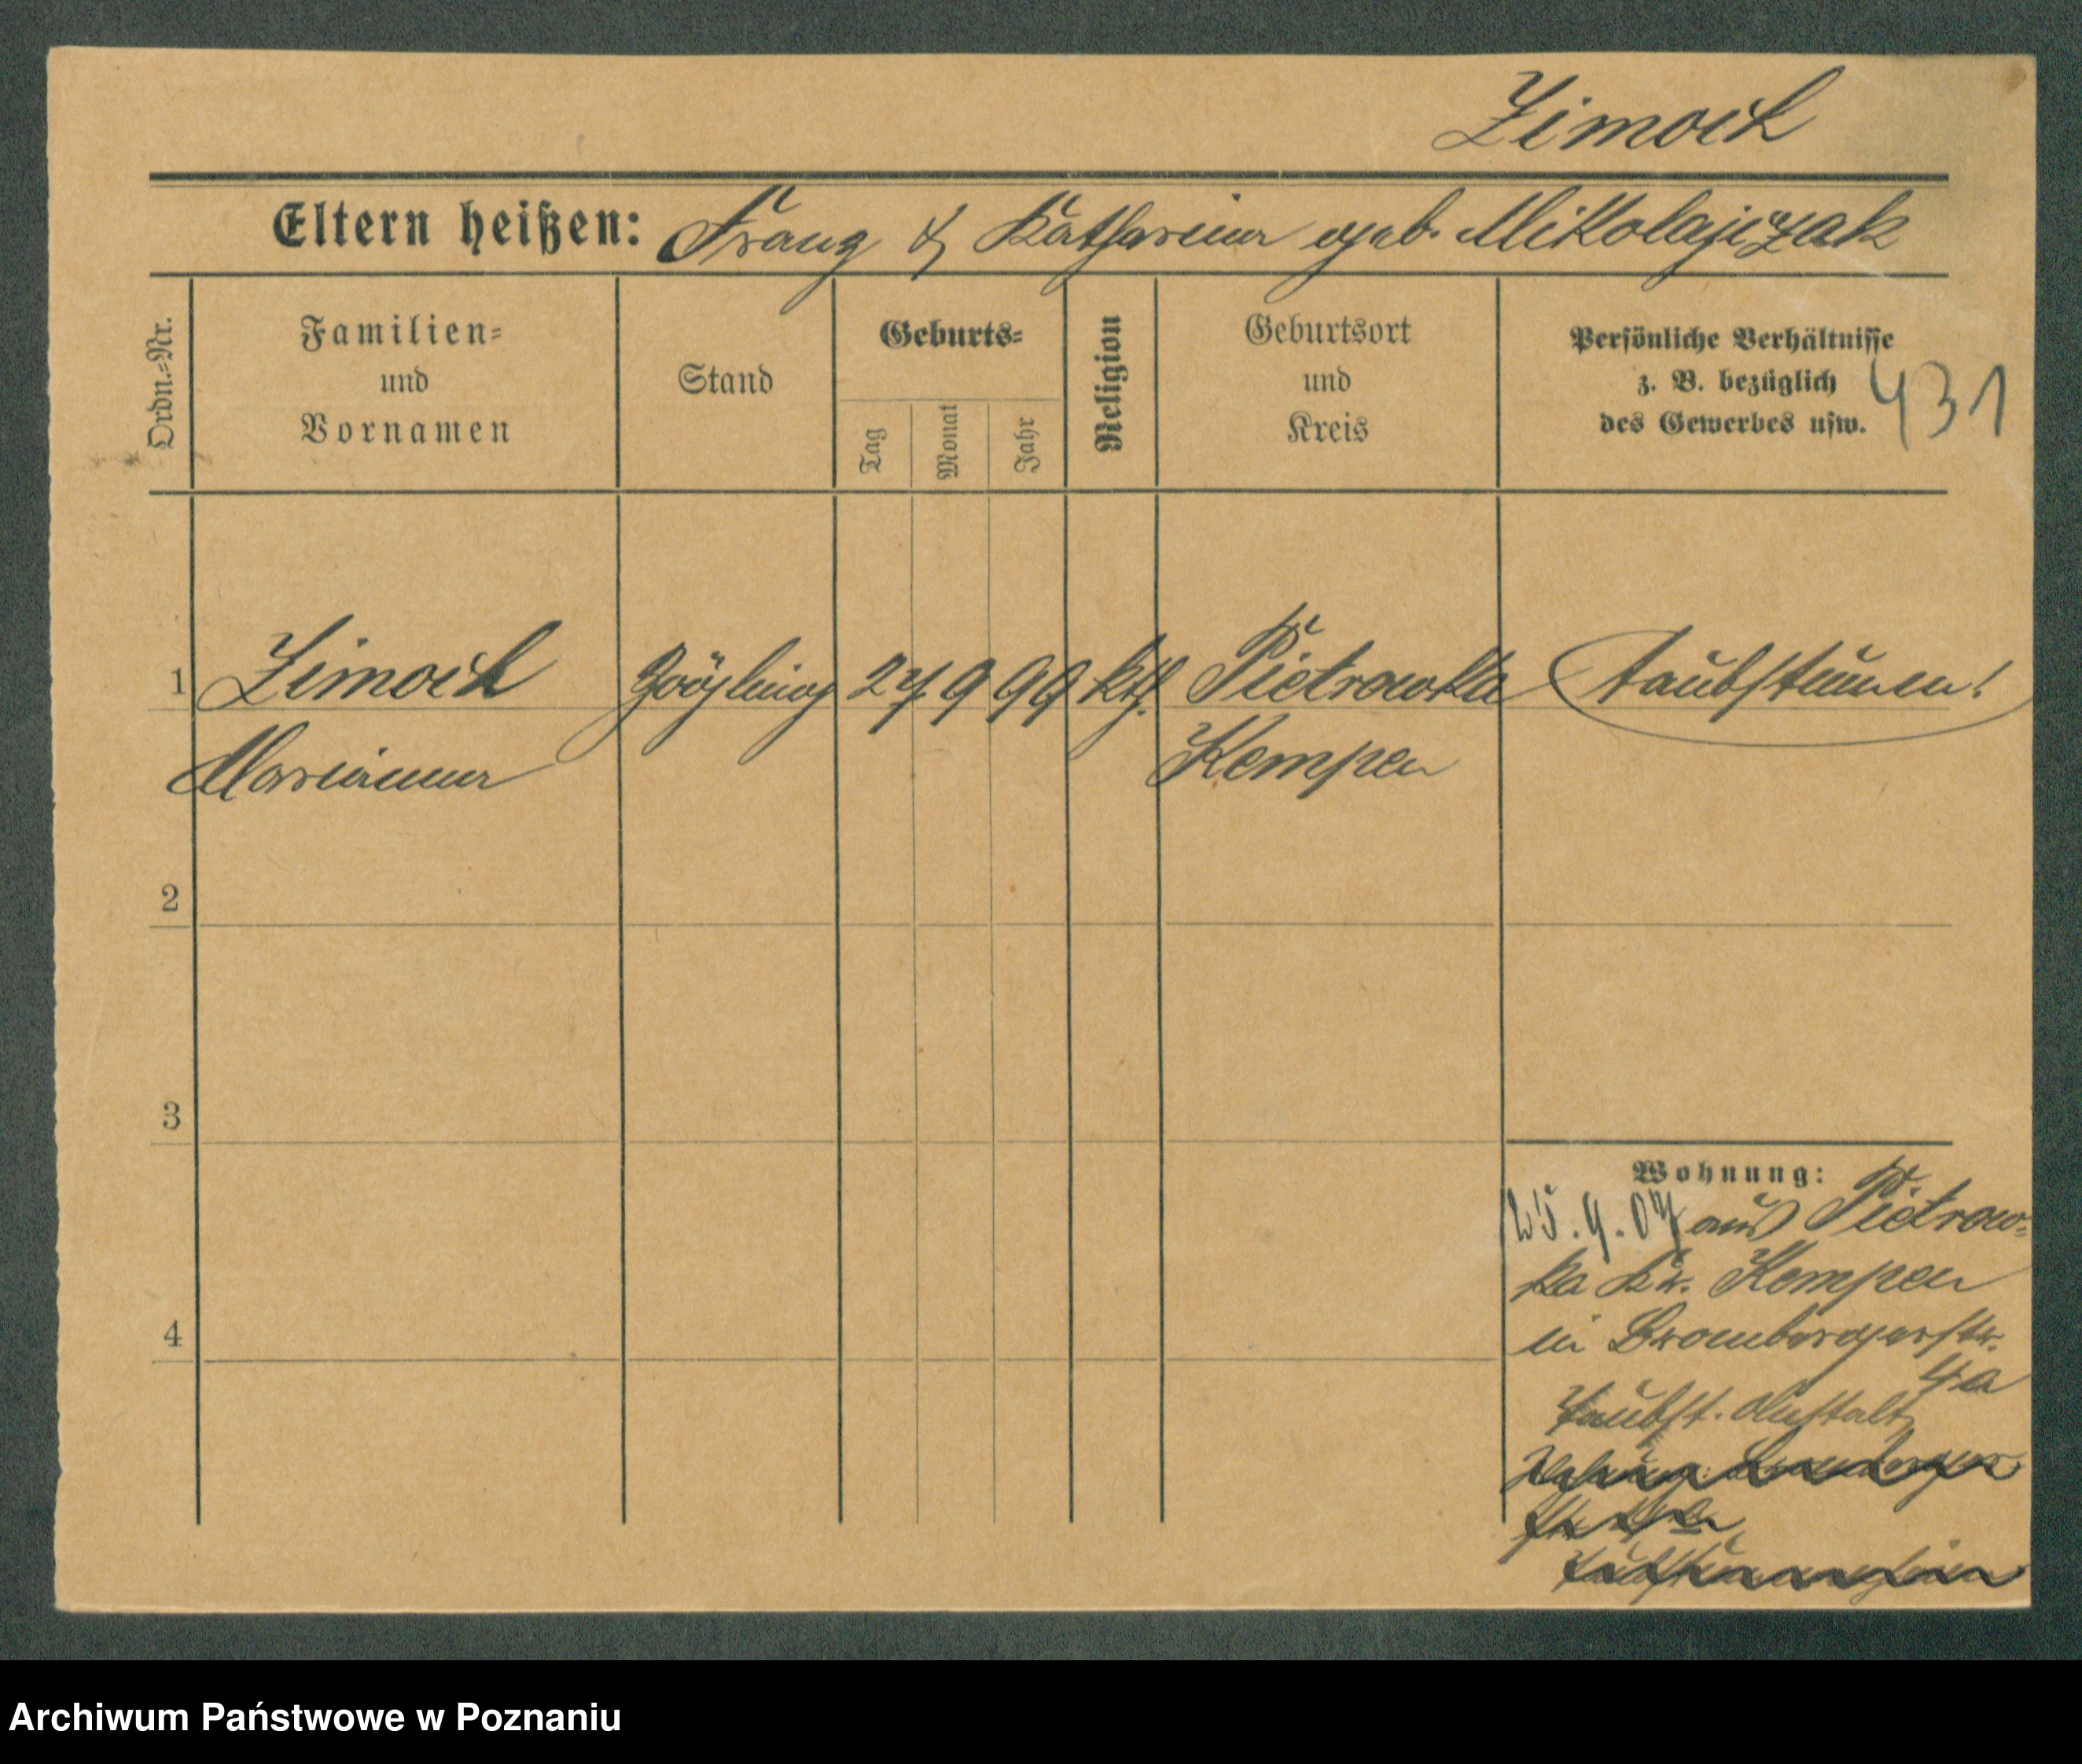 Zimoch
Eltern heißen: Franz & Katharina geb. Mikolajczak
Ordn.-Nr.
Familien-
und
Vornamen
Stand
Geburts-
Tag
Monat
Jahr
Religion
Geburtsort
und
Kreis
Persönliche Verhältnisse
z. B. bezüglich
des Gewerbes usw.
431
1 Zimoch Zögling 27 9 99 kth. Pietrowka taubstumm!
Marianna Kempen
2
3
4
Wohnung:
25.9.07 aus Pietrow-
ka Kr. Kempen
in Brombergerstr.
4a
Taubst. Anstalt
Archiwum Państwowe w Poznaniu